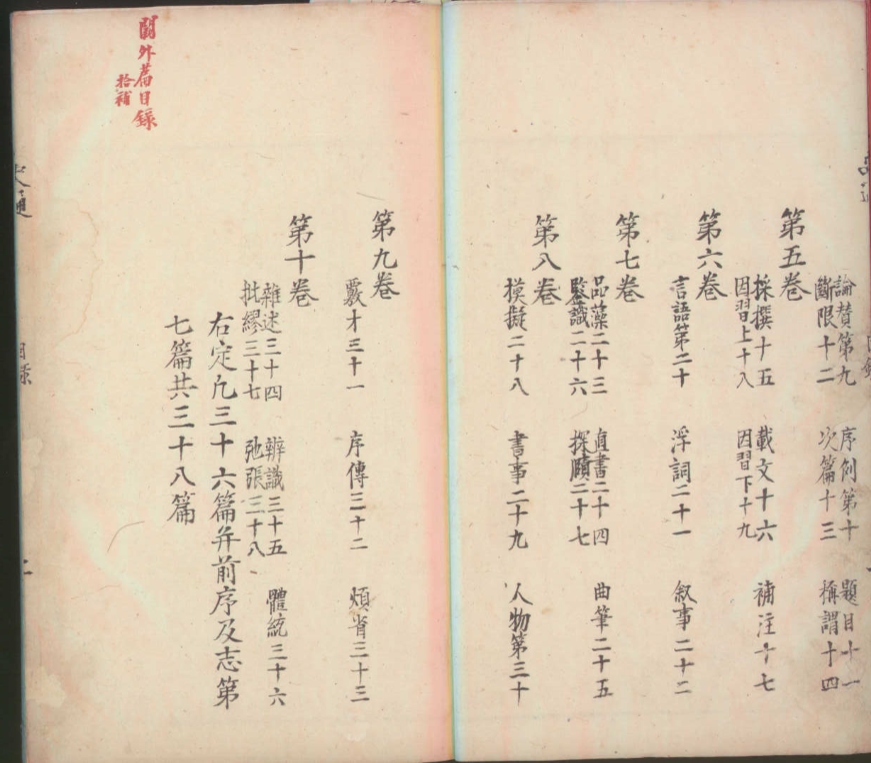 論贊第九 序例第十 題目十一
斷限十二 次篇十三 稱謂十四
第五卷
採撰十五 載文十六 補注十七
因習上十八 因習下十九
第六卷
言語第二十 浮詞二十一 叙事二十二
第七卷
品藻二十三 直書二十四 曲筆二十五
鑒識二十六 探賾二十七
第八卷
摸擬二十八 書事二十九 人物第三十
第九卷
覈才三十一 序傳三十二 煩省三十三
第十卷
雜述三十四 辨識三十五 體統三十六
紕繆三十七 弛張三十八
右定凡三十六篇并前序及志第
七篇共三十八篇
史通
目錄
二
闕外篇目錄
拾補